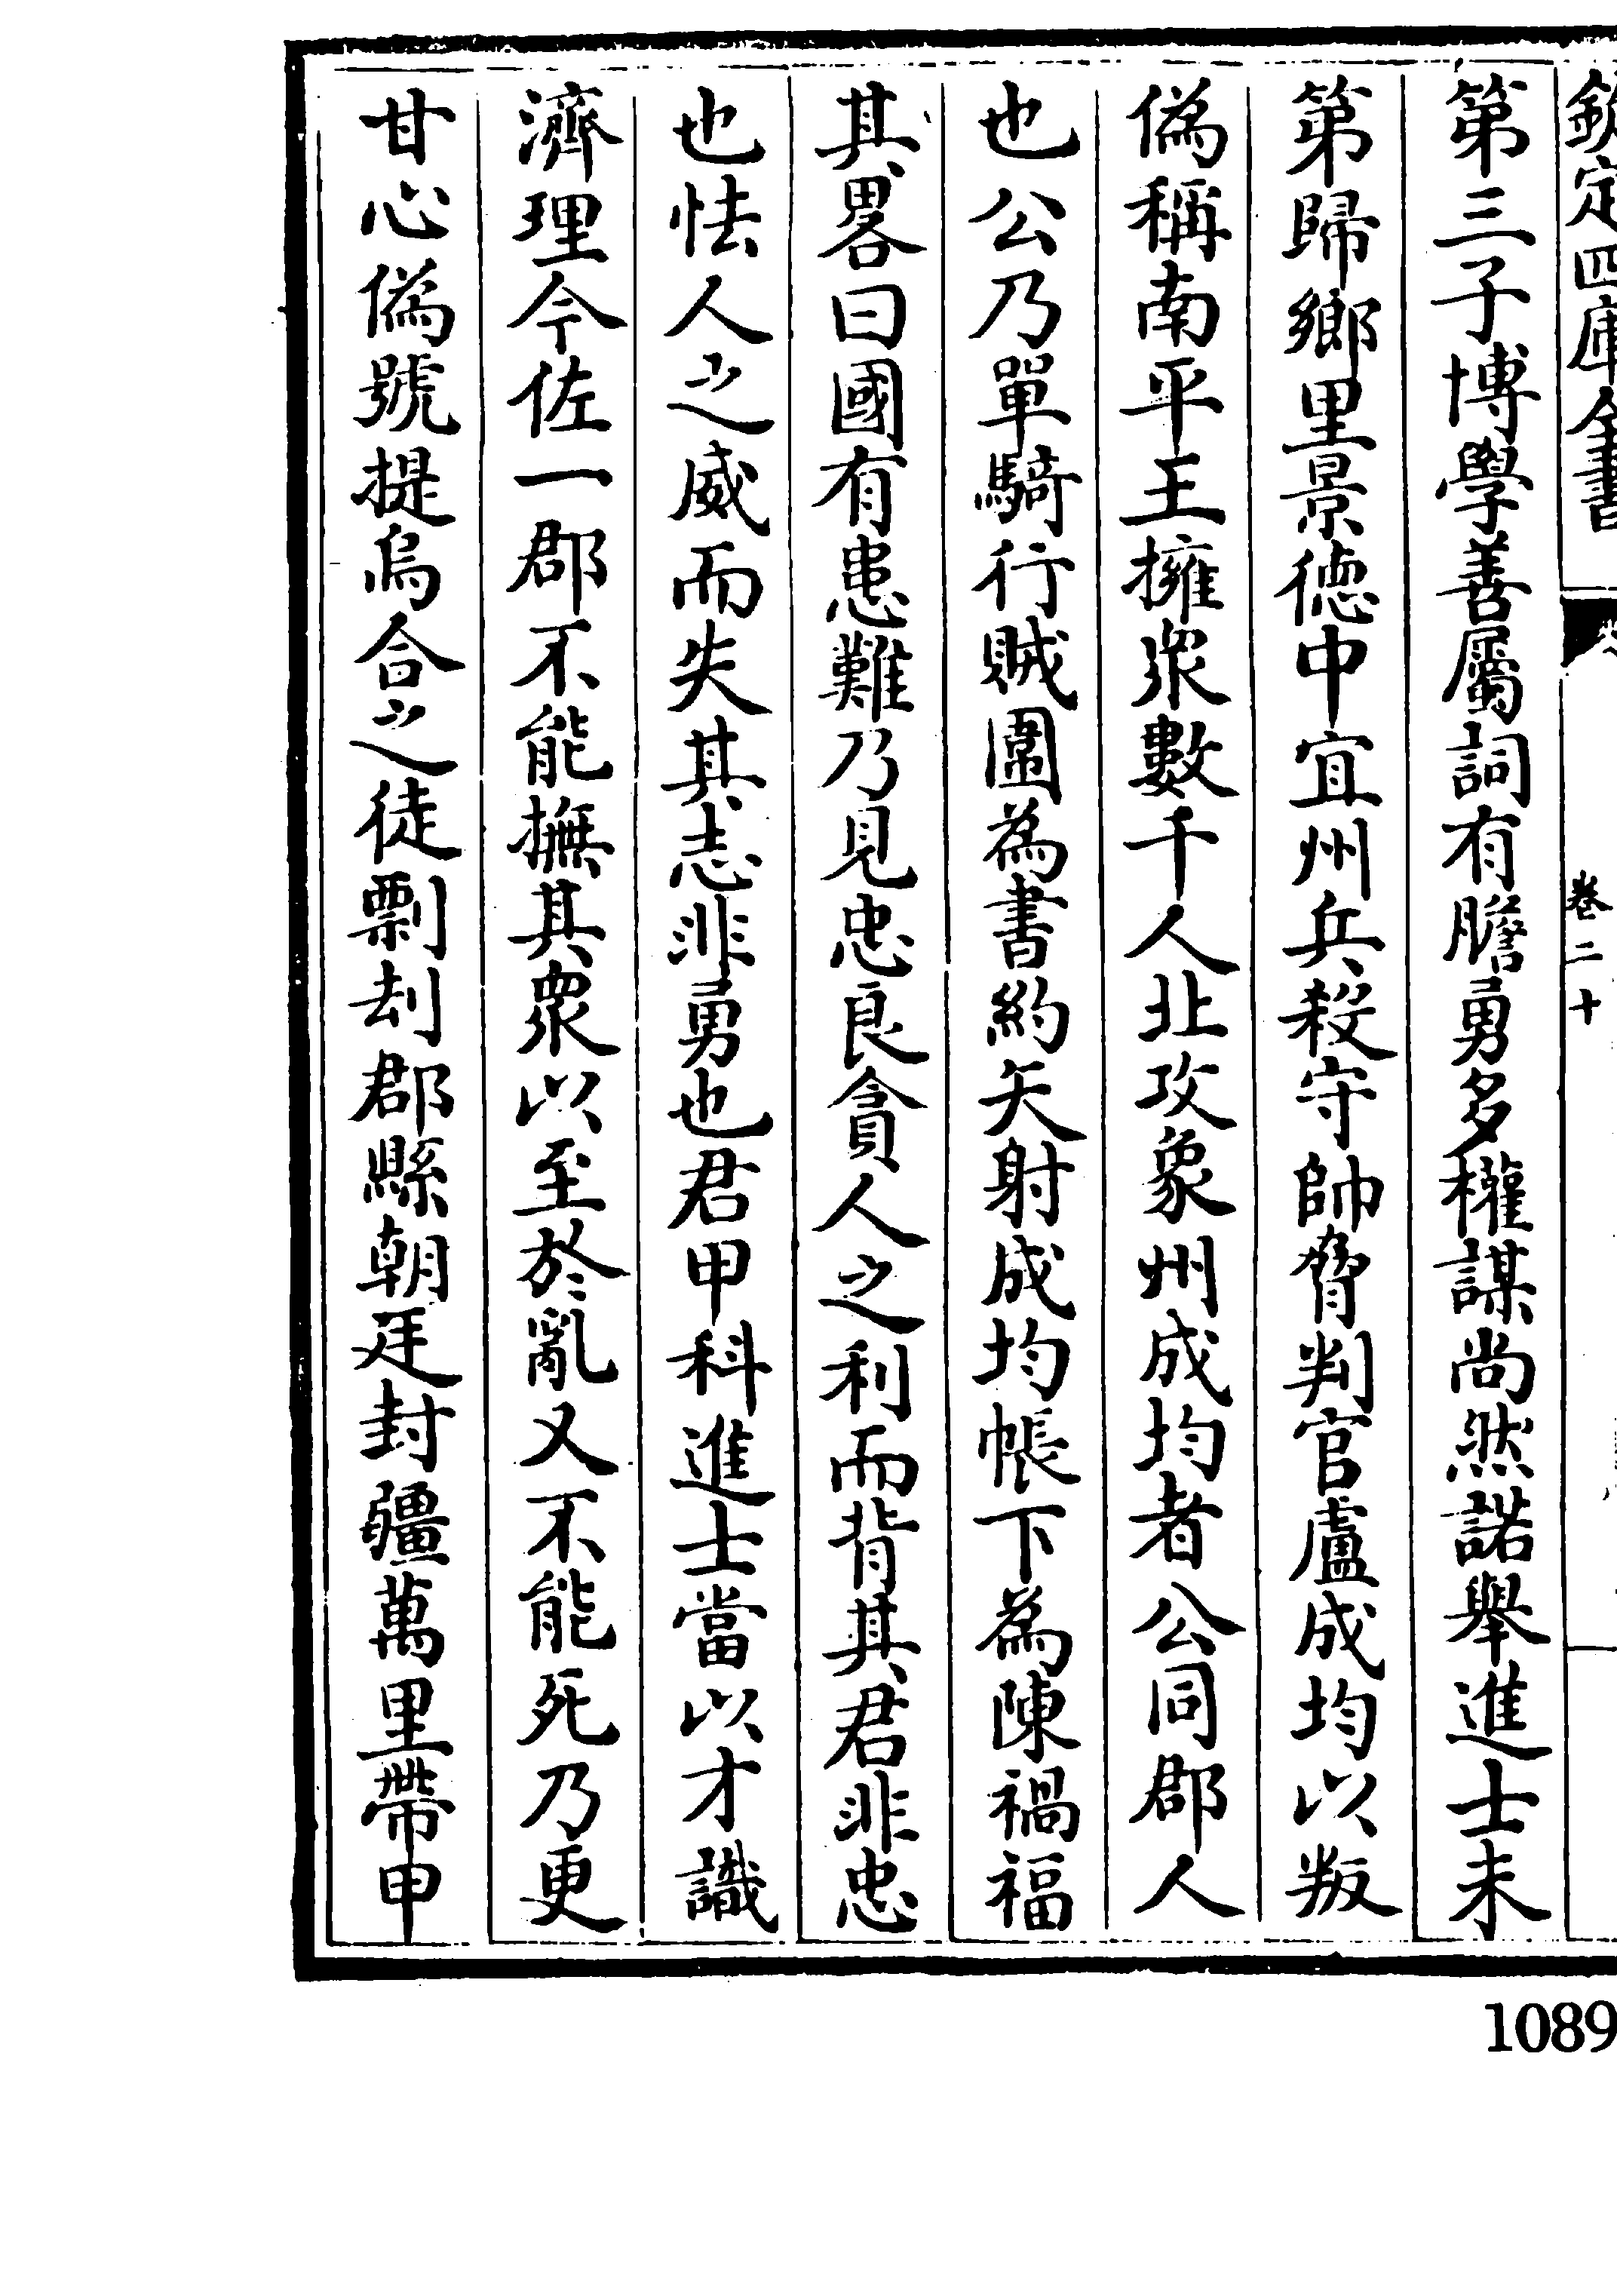 欽定四庫全書
卷二十
第三子博學善屬詞有膽勇多權謀尚然諾舉進士未
第歸鄉里景德中宜州兵殺守帥脅判官盧成均以叛
偽稱南平王擁眾數千人北攻象州成均者公同郡人
也公乃單騎行賊圍為書約矢射成均帳下為陳禍福
其畧曰國有患難乃見忠良貪人之利而背其君非忠
也怯人之威而失其志非勇也君甲科進士當以才識
濟理今佐一郡不能撫其眾以至於亂又不能死乃更
甘心偽號提烏合之徒剽刦郡縣朝廷封疆萬里帶甲
1089